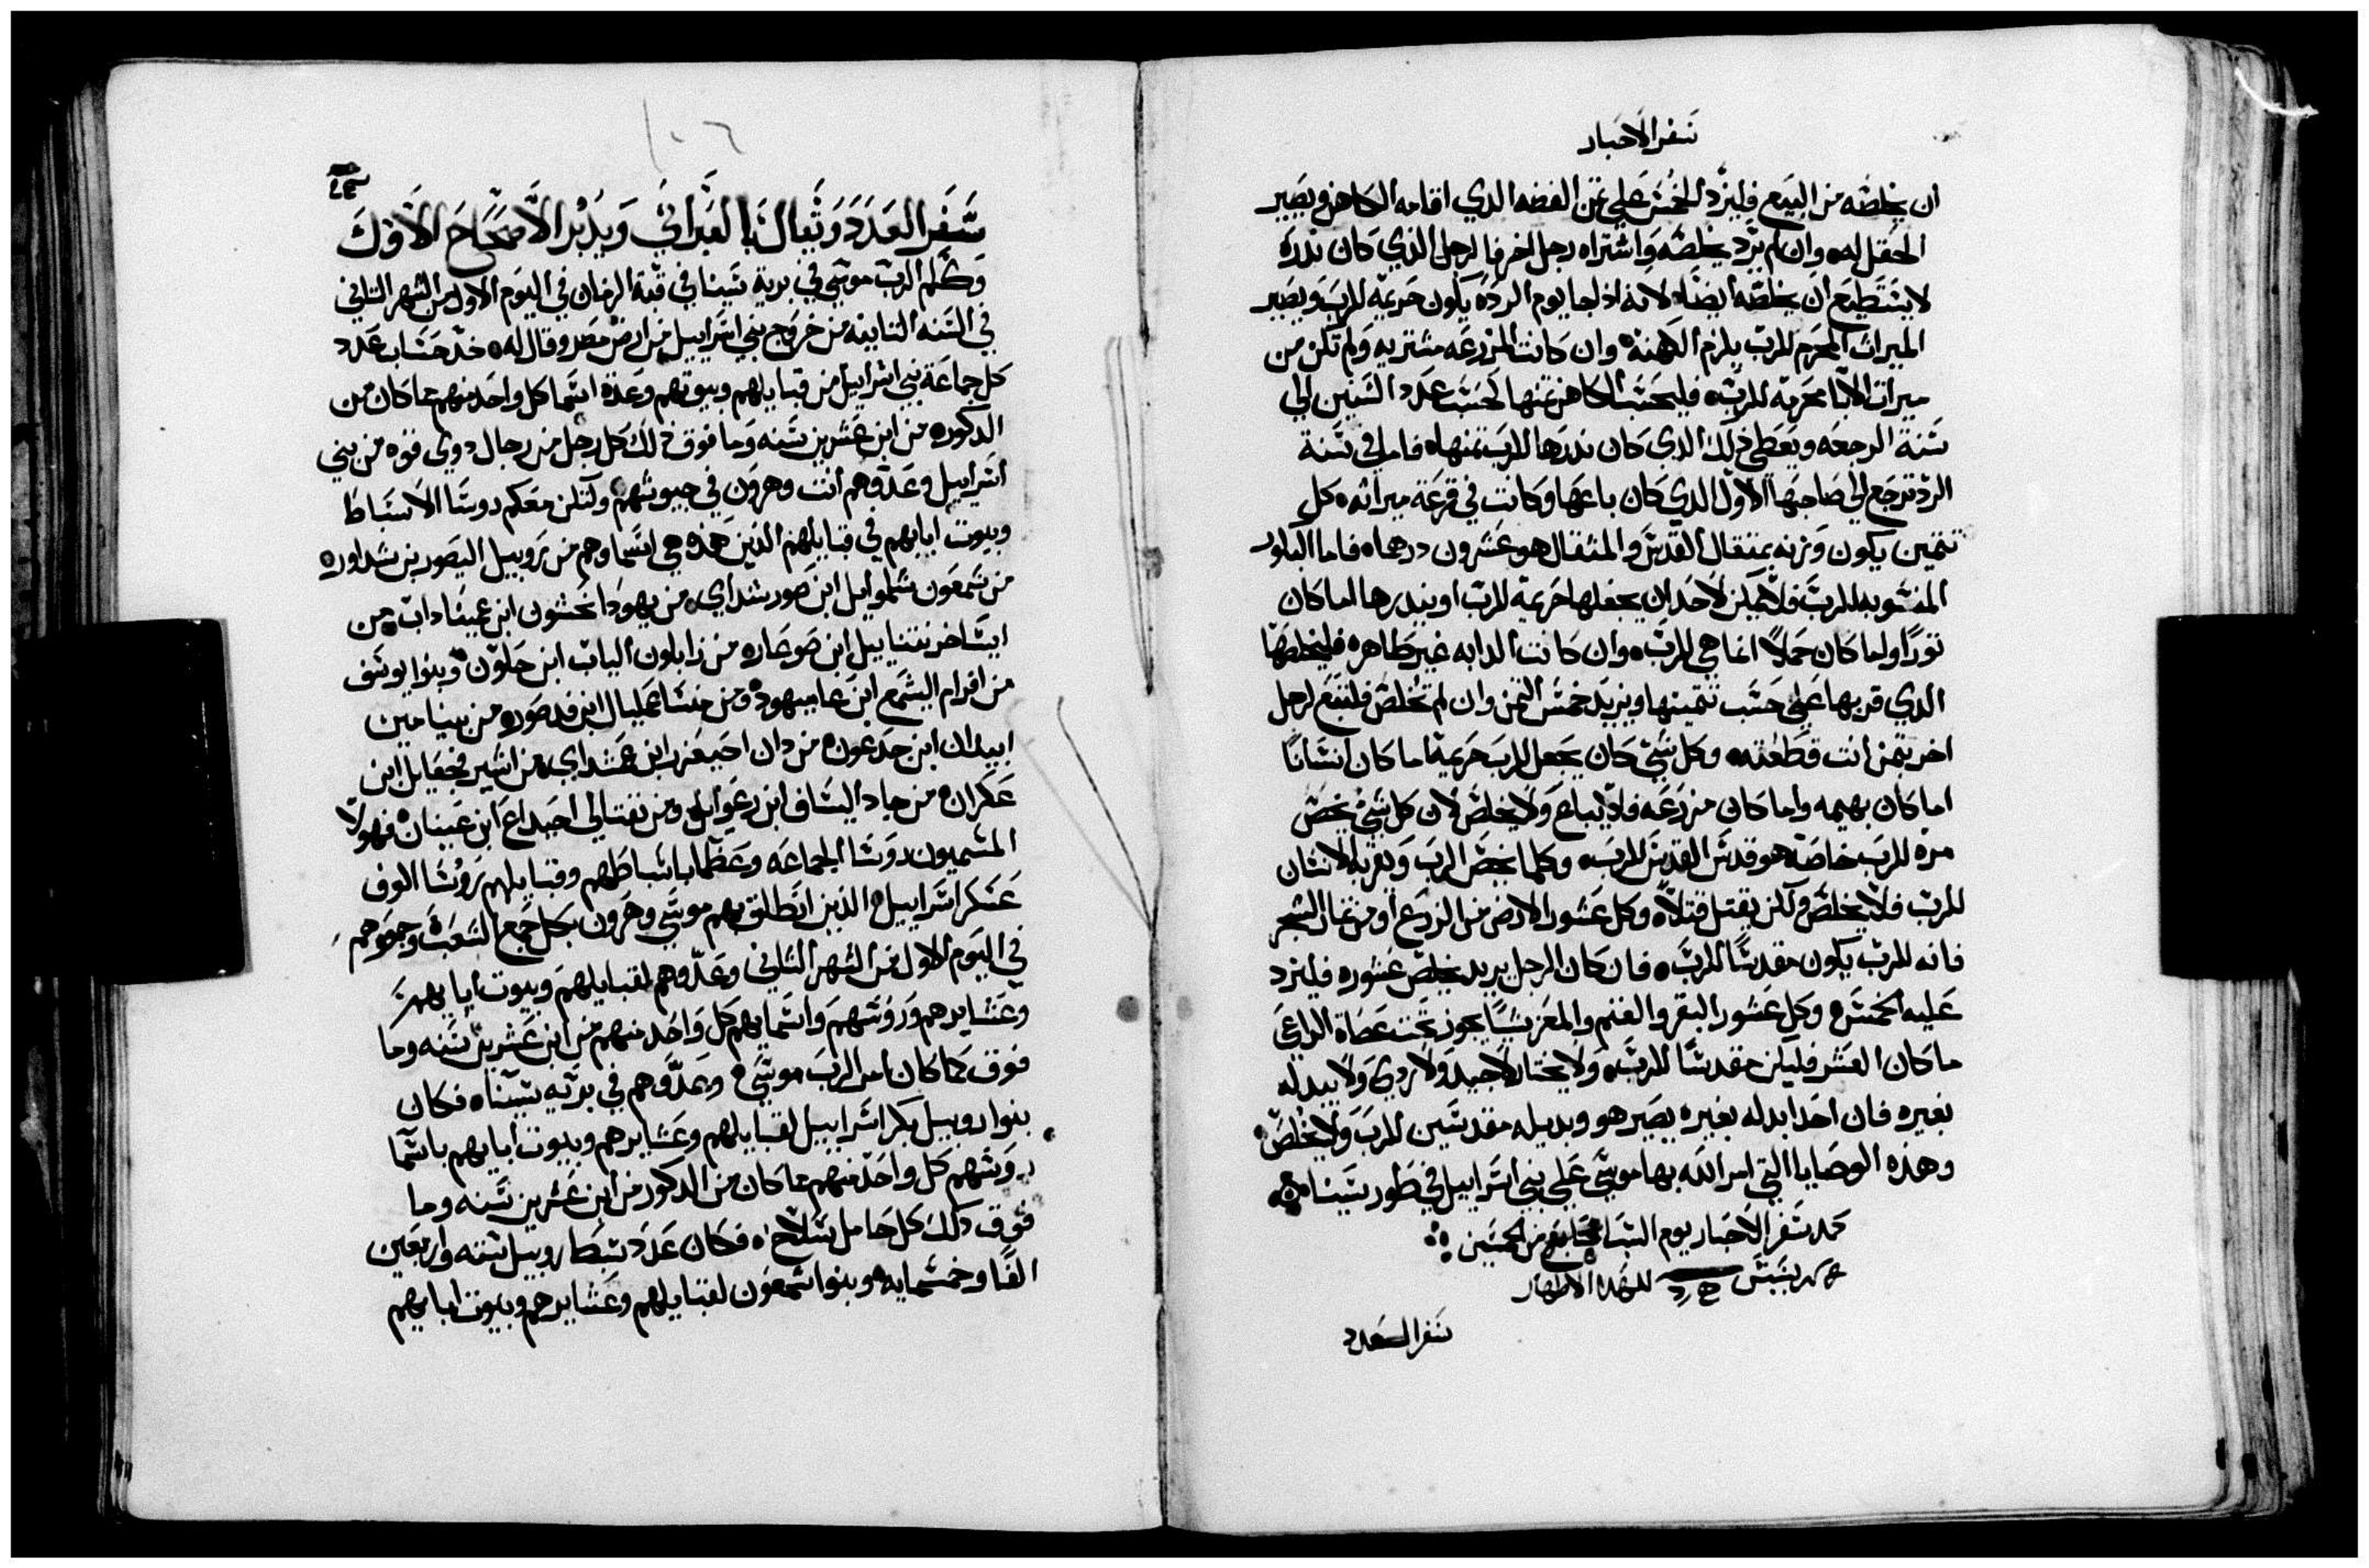 سفر الاحبار
ان يخلصه من البيع فليزد الخمس على ثمن الفضه الدي اقامه الكاهن ويصير
الحقل له وان لم يرد يخلصه واشتراه رجل اخر فالرجل الذي كان ندره
لا يستطيع ان يخلصه ايضا لانه اذا جا يوم الرده يكون حريمة للرب ويصير
الميراث المحرم للرب يلزم الكهنة وان كانت المزرعه مشتريه ولم تكن من
ميراث الابا محرمه للرب فليحتسب الكاهن ثمنها كحسب عدد السنين الى
سنة الرجعه ويعطي ذلك الدي كان ندرها للرب ثمنها فاما في سنة
الرد ترجع الى صاحبها الاول الدي كان باعها وكانت في قرعة ميراثه كل
تثمين يكون وزنه بمثقال القدس والمثقال هو عشرون درهما فاما البكور
المنسوبه للرب فلا يمكن لاحد ان يجعلها حريمة للرب او يندرها اما كان
ثورا واما كان حملا انما هي للرب وان كانت الدابه غير طاهره فليخلصها
الدي قربها على حسب تثمينها ويزيد خمس الثمن وان لم تخلص فلتبع لرجل
اخر بثمن انت قطعته وكل شي كان يجعل للرب حريمة اما كان انسانا
اما كان بهيمه واما كان مزرعه فلا يباع ولا يخلص لان كل شي يخص
مرة للرب خاصة هو قدس القدس للرب وكلما يخص الرب ويقربه الانسان
للرب فلا يخلص ولكن يقتل قتلا وكل عشور الارض من الزرع او من ثمار الشجر
فانه للرب يكون مقدسا للرب فان كان الرجل يريد يخلص عشوره فليزد
عليه الخمس وكل عشور البقر والغنم والمعز شيا يجوز تحت عصاة الراعي
ما كان العشر فليكن مقدسا للرب ولا يختار لا جيد ولا ردي ولا يبدله
بغيره فان احد ابدله بغيره يصير هو وبديله مقدسين للرب ولا يخلص
وهذه الوصايا التي امر الله بها موسى على بني اسراييل في طور سينا
كمل سفر الاحبار يوم السبت
للشهدا الاطهار
سفر العدد
١٠٦
سفر العدد ويقال بالعبراني ويدبر الاصحاح الاول
وكلم الرب موسى في برية سينا في قبة الزمان في اليوم الاول من الشهر الثاني
في السنه الثانيه من خروج بني اسراييل من ارض مصر وقال له خد حساب عدد
كل جماعة بني اسراييل من قبايلهم وبيوتهم وعدة اسما كل واحد منهم مما كان من
الدكوره من ابن عشرين سنه وما فوق ذلك كل رجل من رجال دوي قوه من بني
اسراييل وعدوهم انت وهرون في جيوشهم ولتكن معكم روسا الاسباط
وبيوت ابايهم في قبايلهم الذين هذه هي اسماوهم من روبيل اليصور بن شداور
من شمعون شلموايل ابن صورشداي من يهودا نحشون ابن عميناداب من
ايساخر نتناييل ابن صوعار من زابلون الياب ابن حلون وبنوا يوسف
من افرام اليشمع ابن عاميهود ومن منسا عمليال ابن فدصور من بنيامين
ابيدان ابن جدعون من دان احيعزر ابن عمشداي من اشير فجعايل ابن
عكران من جاد الياساف ابن رعوايل ومن نفتالي احيداع ابن عينان فهولا
المسميون روسا الجماعه وعظما باسباطهم وقبايلهم روسا الوف
عسكر اسراييل الذين انطلق بهم موسى وهرون بكل جمع الشعب وجموهم
في اليوم الاول من الشهر الثاني وعدوهم لقبايلهم وبيوت ابايهم
وعشايرهم وروسهم واسمايهم كل واحد منهم من ابن عشرين سنه وما
فوق كما كان امر الرب موسى وعدوهم في بريه سينا فكان
بنوا روبيل بكر اسراييل لقبايلهم وعشايرهم وبيوت ابايهم باسما
روسهم كل واحد منهم مما كان من الدكور من ابن عشرين سنه وما
فوق ذلك كل حامل سلاح فكان عدد سبط روبيل سته واربعين
الفا وخمسمايه وبنوا شمعون لقبايلهم وعشايرهم وبيوت ابايهم